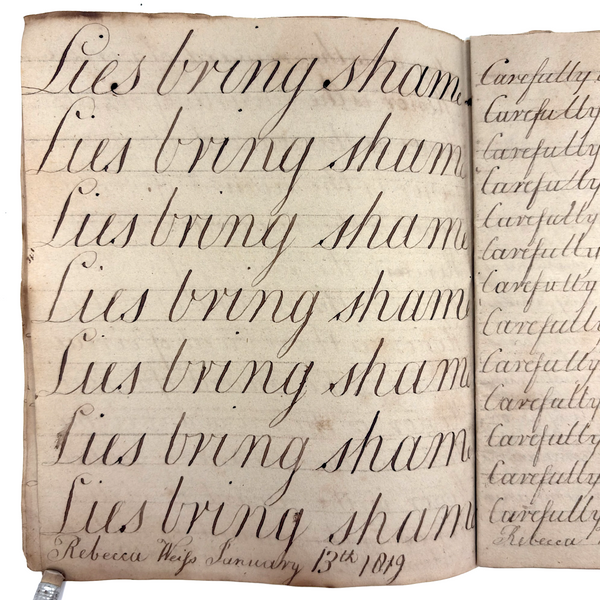 Lies bring shame
Lies bring shame
Lies bring shame
Lies bring shame
Lies bring shame
Lies bring shame
Lies bring shame
Rebecca Weiſs January 13th 1819
Carefully
Carefully
Carefully
Carefully
Carefully
Carefully
Carefully
Carefully
Carefully
Carefully
Carefully
Carefully
Carefully
Rebecca